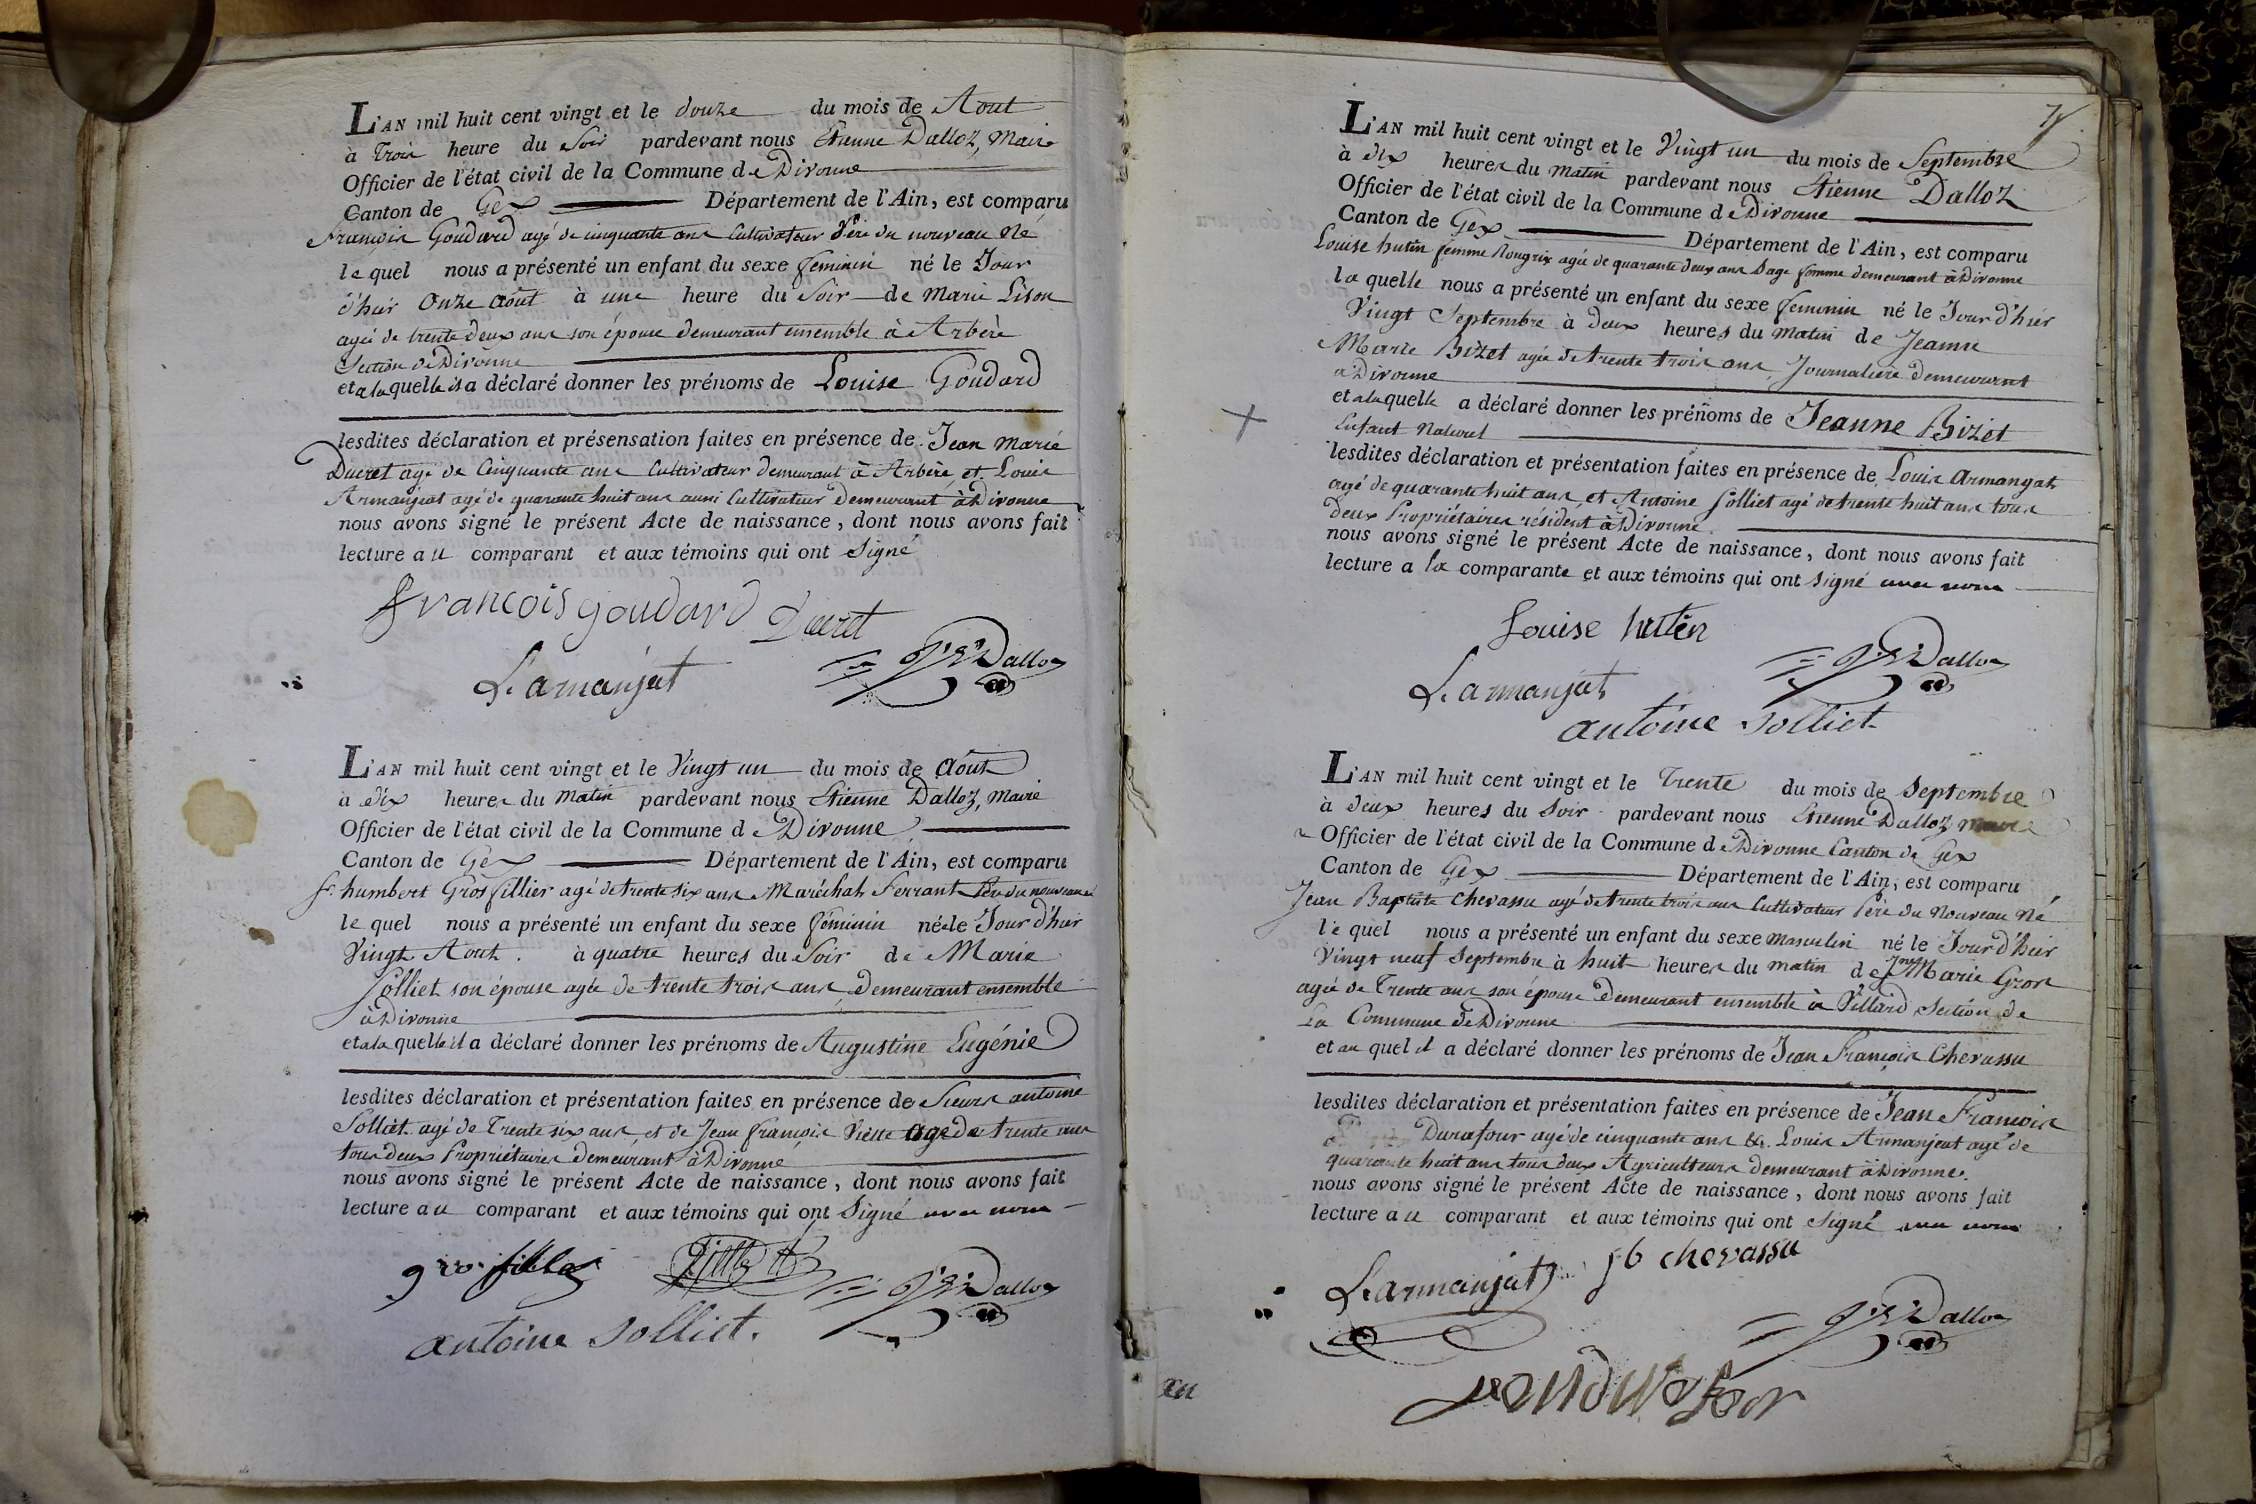 L'AN mil huit cent vingt et le douze du mois de Aout
à Trois heure du Soir pardevant nous Etienne Dalloz, Maire
Officier de l'état civil de la Commune de Divonne
Canton de Gex Département de l'Ain, est comparu
François Goudard agé de cinquante ans Cultivateur Père du nouveau Né
le quel nous a présenté un enfant du sexe féminin né le Jour
d'hier Onze Août à une heure du Soir de Marie Lison
agée de trente deux ans son épouse demeurant ensemble à Arbère
Section de Divonne
et a la quelle il a déclaré donner les prénoms de Louise Goudard
lesdites déclaration et présensation faites en présence de Jean Marie
Ducret agé de Cinquante ans Cultivateur demeurant à Arbère, et Louis
Armanjeat agé de quarante huit ans aussi Cultivateur Demeurant à Divonne
nous avons signé le présent Acte de naissance, dont nous avons fait
lecture au comparant et aux témoins qui ont Signé
françois goudard Ducret
L. armanjat Dalloz
L'AN mil huit cent vingt et le Vingt un du mois de Août
à dix heures du Matin pardevant nous Etienne Dalloz, Maire
Officier de l'état civil de la Commune de Divonne
Canton de Gex Département de l'Ain, est comparu
fs. humbert Grosfillier agé de trente six ans Maréchal Ferrant Père du nouveau né
le quel nous a présenté un enfant du sexe féminin né le Jour d'hier
Vingt Aout. à quatre heures du Soir de Marie
Solliet son épouse agée de trente trois ans, Demeurant ensemble
à Divonne
et a la quelle il a déclaré donner les prénoms de Augustine Eugénie
lesdites déclaration et présentation faites en présence de Sieurs antoine
Solliet agé de Trente six ans et de Jean françois agé de trente ans
tous deux Propriétaires demeurant à Divonne
nous avons signé le présent Acte de naissance, dont nous avons fait
lecture au comparant et aux témoins qui ont Signé avec nous
Dalloz
antoine Solliet.
L'AN mil huit cent vingt et le Vingt un du mois de Septembre
à dix heures du Matin pardevant nous Etienne Dalloz
Officier de l'état civil de la Commune de Divonne
Canton de Gex Département de l'Ain, est comparu
Louise hutin femme Rougrix agée de quarante deux ans Sage femme demeurant à Divonne
la quelle nous a présenté un enfant du sexe feminin né le Jour d'hier
Vingt Septembre à deux heures du Matin de Jeanne
Marie Bizet agée de trente trois ans, Journalière demeurant
à Divonne
et a la quelle a déclaré donner les prénoms de Jeanne Bizet
Enfant Naturel
lesdites déclaration et présentation faites en présence de Louis Armanyat
agé de quarante huit ans et Antoine Solliet agé de trente huit ans tous
deux Propriétaires résident à Divonne
nous avons signé le présent Acte de naissance, dont nous avons fait
lecture a la comparante et aux témoins qui ont signé avec nous
Louise hutin
Dalloz
L. armanjat
antoine Solliet
L'AN mil huit cent vingt et le Trente du mois de Septembre
à deux heures du Soir pardevant nous Etienne Dalloz Maire
Officier de l'état civil de la Commune de Divonne Canton de Gex
Canton de Gex Département de l'Ain, est comparu
Jean Baptiste Chevassu agé de trente trois ans Cultivateur Père du Nouveau Né
le quel nous a présenté un enfant du sexe Masculin né le Jour d'hier
Vingt neuf Septembre à huit heures du matin de Jne Marie Gros
agée de Trente ans son épouse Demeurant ensemble à Villard, Section de
La Commune de Divonne
et au quel il a déclaré donner les prénoms de Jean François Chevassu
lesdites déclaration et présentation faites en présence de Jean François
Durafour agé de cinquante ans & Louis Armanjeat agé de
quarante huit ans tous deux Agriculteurs demeurant à Divonne.
nous avons signé le présent Acte de naissance, dont nous avons fait
lecture au comparant et aux témoins qui ont Signé avec nous
L. armanjat Jb chevassu
Dalloz